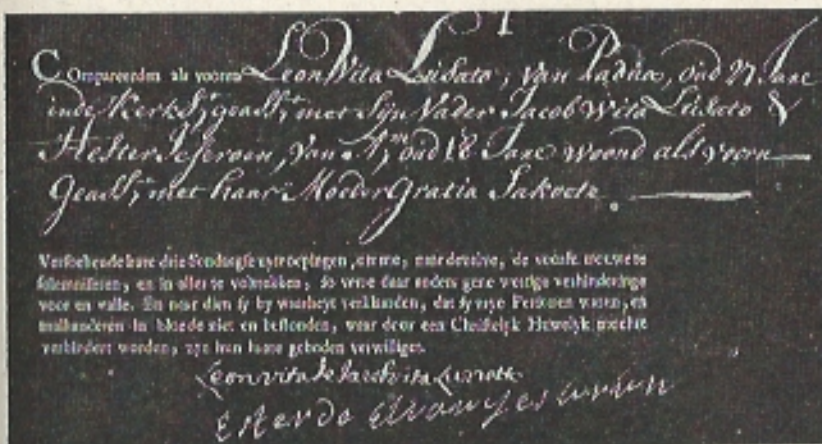 Compareerden als vooren Leon Vita Lusato, van Padua, oud 27 Jare
inde Kerkst. geadst. met Sijn Vader Jacob Vita Lusato &
Hester Jeseroen, van Am oud 18 Jare woond als voorn
geadst. met haar Moeder Gratia Sakoete.
Versoekende hare drie Sondaegse uytroepingen, omme, naer deselve, de voorsz. trouwe te
solemniseren, en in alles te voltrekken, so verre daer anders gene wettige verhinderinge
voor en valle. En naer dien sy by waerheyt verklaerden, dat sy vrye Personen waren, en
malkanderen in bloede niet en bestonden, waer door een Christelyk Huwelyk mochte
verhindert worden, zyn hun hare geboden verwilliget.
Leon vita de Jacob vita
Ester de